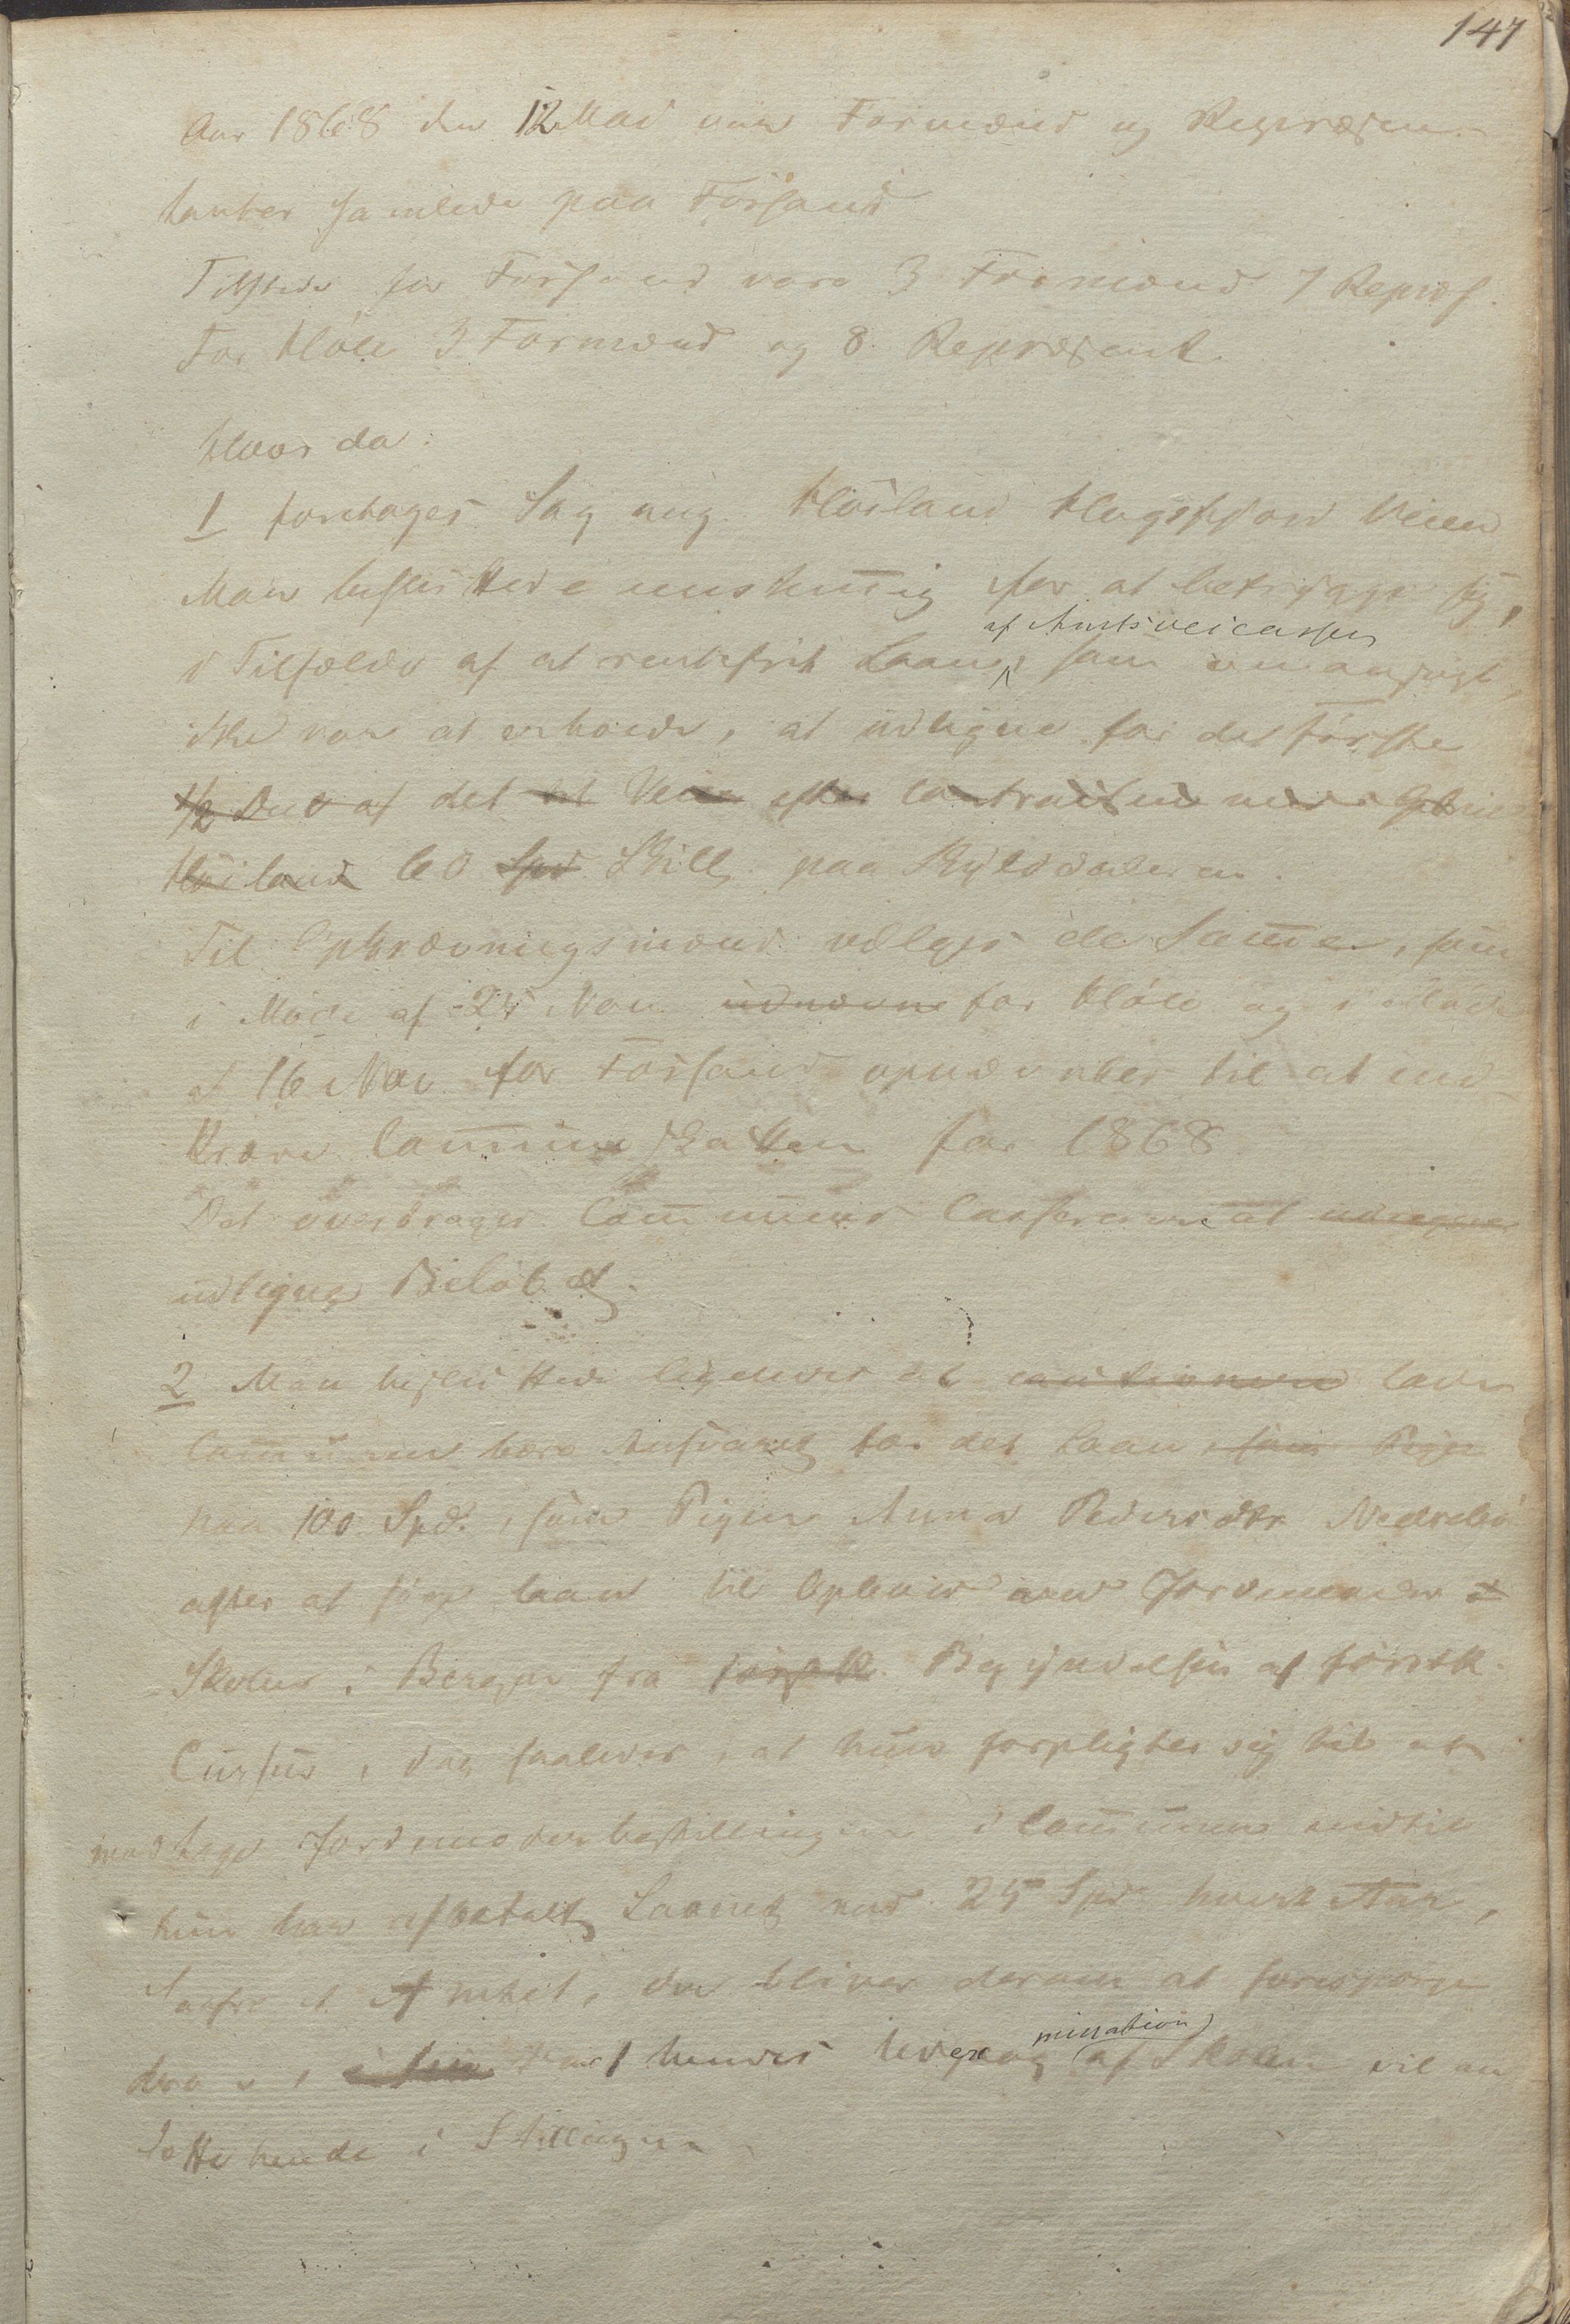 147
Aar 1868 den 12 Mai var Formænd og Repræsen-
tanter samlede paa Forsand
Tilstede for Forsand vare 3 Formænd 7 Repræs.
For Höle 3 Formænd og 8 Repræsent.
Hvor da:
1 foretages Sag ang. Höiland Hogsfjord Veien
Man besluttede eenstemig for at betrygge sig,
af Amtsveicassen
i Tilfælde af at rentefrit Laan, som omansøgt,
ikke var at erholde, at udligne for det förste
1/2 Deel af det til Veien efter Contracten med
Höiland 60 Spd Skill paa Skylddaleren.
Til Opkrævningsmænd vælges de Samme, som
i Möde af 25 Nov. udnævne for Höle og i Möde
af 16 Nov for Forsand opnævntes til at ind-
kræve Communeskatten for 1868
Det overdrages Communens Cassereren at
udligne Belöbet.
2 Man besluttede ligeledes at cautionere lade
Communen bære Ansvaret for det Laan som Pigen
paa 100 Spd. som Pigen Anna Pedersdtr Nedrebö
agter at söge laant til Ophold ved Jordemoder
Skolen i Bergen fra förstk. Begyndelsen af förstk.
Cursus, dog saaledes, at hun forpligter sig til at
modtage Jordmoderbestillingen i Communen indtil
hun har afbetalt Laanet med 25 Spd hvert Aar,
Saafremt Amtet, der bliver derom at forespörge
mination)
derom, efter hendes af Skolen vil an-
sætte hende i Stillingen